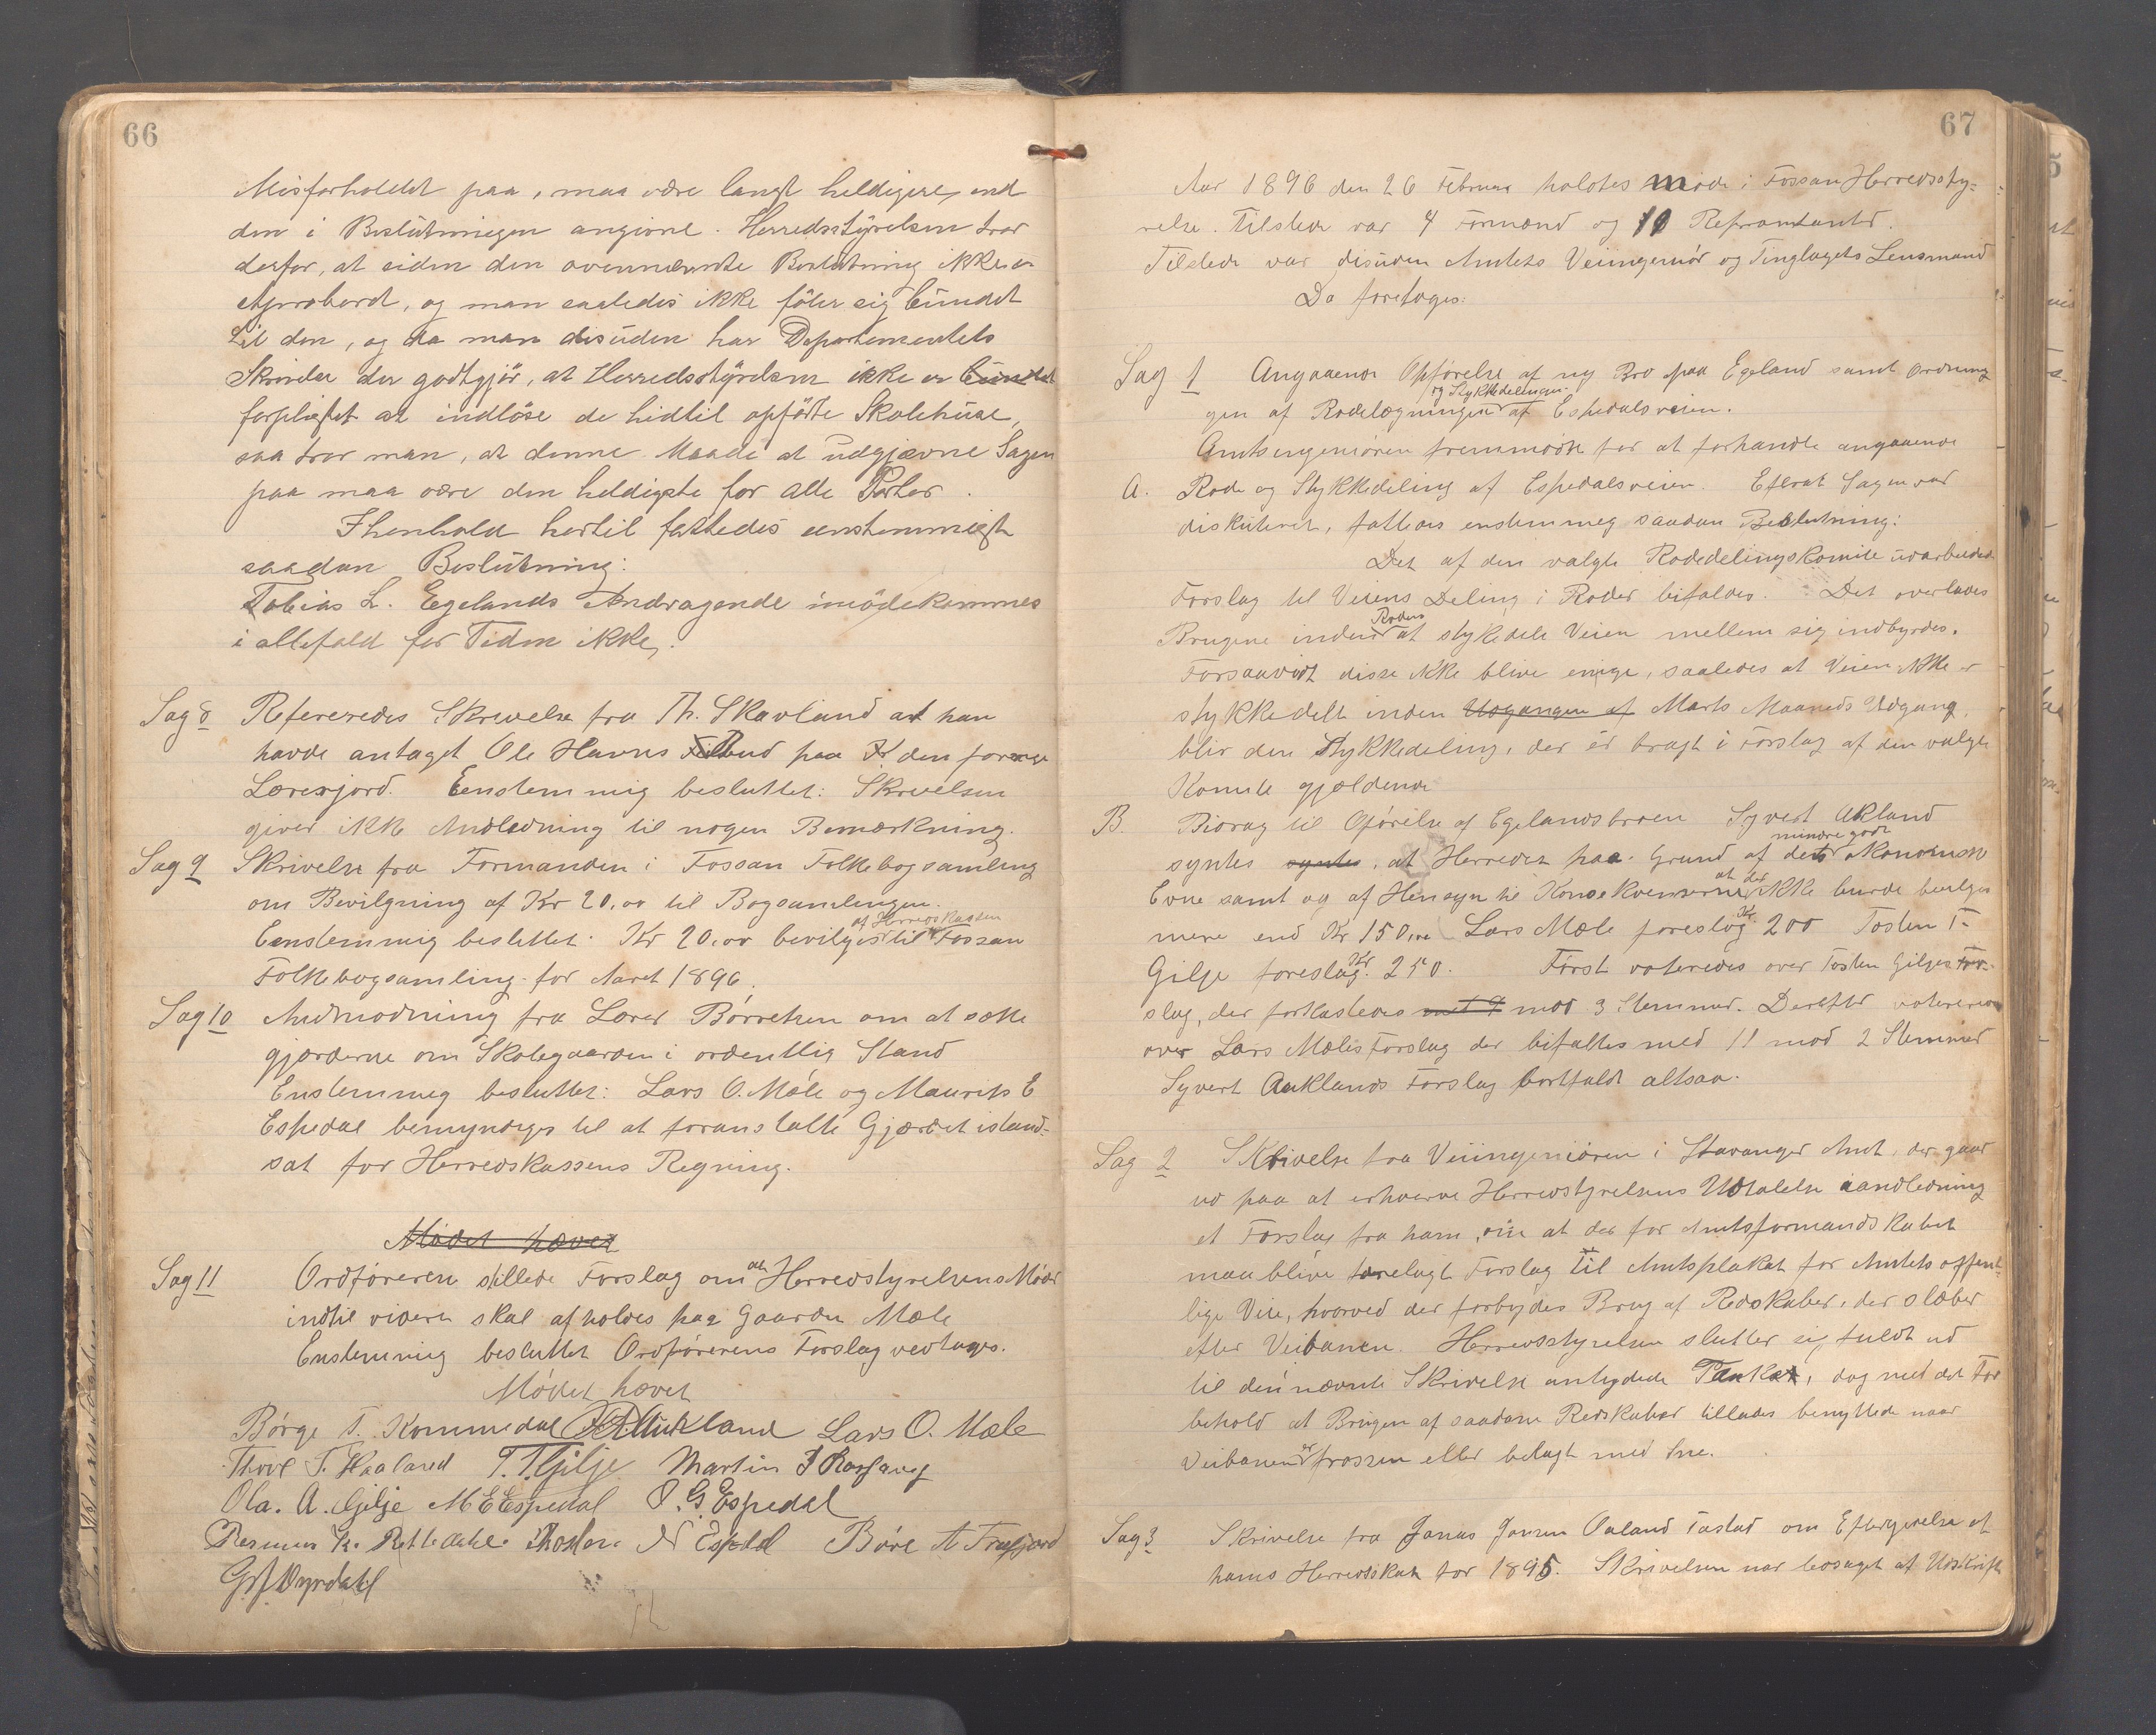 66
Misforholdet paa, maa være langt heldigere, end
den i Beslutningen angivne. Herredsstyrelsen tror
derfor, at siden den ovennævnte Beslutning ikke er
Aprobert, og man saaledes ikke föler sig bundet
til den, og da man desuden har Departementets
Skrivelse der godtgjör, at Herredsstyrelsen ikke er bundet
forpligtet at indlöse de hidtil opförte Skolehuse,
saa tror man, at denne Maade at udgjævne Sagen
paa maa være den heldigste for alle Parter.
I henhold hertil fattedes enstemmigst
saadan Beslutning:
Tobias L. Egelands Andragende imödekommes
i allefald for Tiden ikke.
Sag 8 Refereredes Skrivelse fra Th. Skavland at han
havde antaget Ole Havns Bud paa den forrige
Lærerjord. Eenstemmig besluttet: Skrivelsen
giver ikke Anledning til nogen Bemærkning.
Sag 9 Skrivelse fra Formanden i Fossan Folkebogsamling
om Bevilgning af Kr 20,00 til Bogsamlingen.
af Herredskassen
Eenstemmig besluttet: Kr 20,00 bevilges til Fossan
Folkebogsamling for Aaret 1896.
Sag 10 Anmodning fra Lærer Börretsen om at sætte
gjærderne om Skolegaarden i ordentlig Stand
Enstemmig besluttet: Lars O. Mæle og Maurits E
Espedal bemyndiges til at foranstalte Gjærdet istand-
sat for Herredskassens Regning.
Mödet hævet
Sag 11 Ordföreren stillede Forslag om at Herredstyrelsens Möder
indtil videre skal afholdes paa Gaarden Mæle
Enstemmig besluttet Ordförerens Forslag vedtages.
Mödet hævet
Börge T. Kommedal Aukland Lars O. Mæle
Thore T. Haaland T. T. Gilje Martin
Ola. A. Gilje M E Espedal O. G. Espedal
Rasmus Rettedal N Espedal Böre A Frafjord
G. J. Oyrdahl
67
Aar 1896 den 26 Februar holdtes Möde i Fossan Herredssty-
relse. Tilstede var 4 Formænd og 10 Repræsentanter.
Tilstede var desuden Amtets Veiingeniör og Tinglagets Lensmand
Da foretoges:
Sag 1 Angaaende Opförelse af ny Bro paa Egeland samt Ordning
og Stykkedelingen
gen af Rodelægningen af Espedalsveien.
Amtsingeniören fremmödte for at forhandle angaaende
A. Rode og Stykkedeling af Espedalsveien. Efterat Sagen var
diskuteret, fattedes enstemmig saadan Beslutning:
Det af den valgte Rodedelingskomite udarbeidede
Forslag til Veiens Deling i Roder bifaldes. Det overlades
Rodens
Brugene inden at stykkedele Veien mellem sig indbyrdes.
Forsaavidt disse ikke blive enige, saaledes at Veien ikke er
stykkedelt inden Udgangen af Marts Maaneds Udgang,
blir den Stykkedeling, der er bragt i Forslag af den valgte
Komite gjældende
B. Bidrag til Opförelse af Egelandsbroen Syvert Aukland
mindre gode
syntes syntes, at Herredet paa Grund af dets ökonomiske
at der
Evne samt og af Hensyn til Konsekvenserne ikke burde bevilges
mere end Kr 150,00 Lars Mæle foreslog Kr 200 Tosten T.
Gilje foreslog Kr 250. Först voteredes over Tosten Giljes For-
slag, der forkastedes med 9 mod 3 Stemmer. Derefter voteredes
over Lars Mæles Forslag der bifaltes med 11 mod 2 Stemmer
Syvert Auklands Forslag bortfaldt altsaa.
Sag 2 Skrivelse fra Veiingeniören i Stavanger Amt, der gaar
ud paa at erhverve Herredstyrelsens Udtalelse iandledning
et Forslag fra ham, om at der for Amtsformandskabet
maa blive forelagt Forslag til Amtsplakat for Amtets offent-
lige Veie, hvorved der forbydes Brug af Redskaber, der slæber
efter Veibanen. Herredsstyrelsen slutter sig fuldt ud
til den i nævnte Skrivelse antydede Tanke, dog med det For
behold at Brugen af saadane Redskaber tillades benyttede naar
er
Veibanen frossen eller belagt med Sne.
Sag 3 Skrivelse fra Jonas Jonsen Oaland Tastad om Eftergivelse af
hans Herredsskat for 1895. Skrivelsen var ledsaget af Udskrift